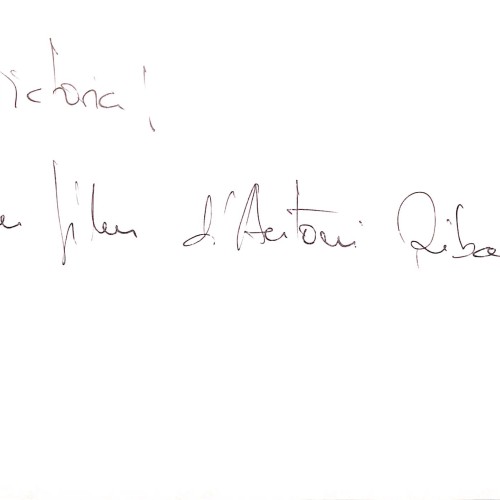 ictoria!
film d'Antoni Riba